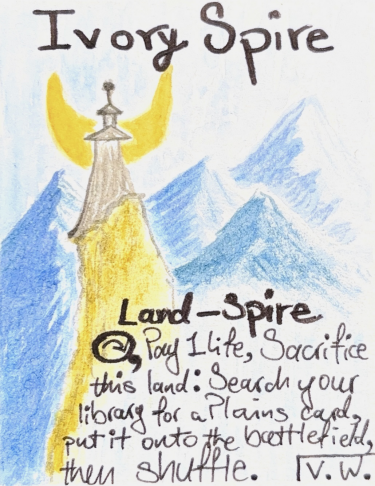 Ivory Spire
Land-Spire
, Pay 1 life, Sacrifice
this land: Search your
library for a Plains card,
put it onto the battlefield,
then shuffle. V.W.